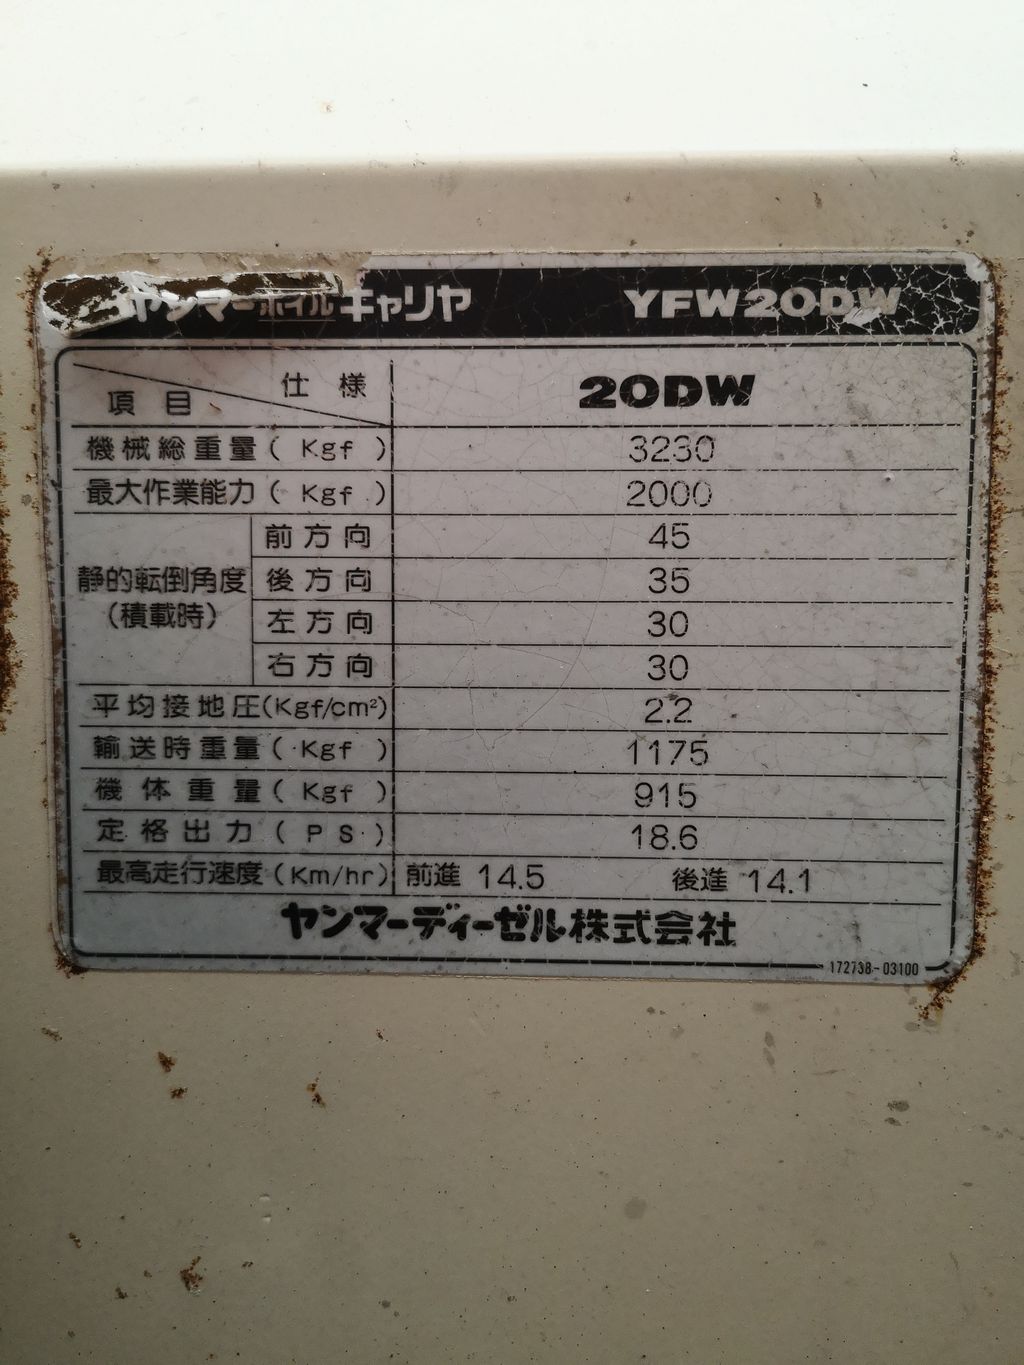 ヤンマーホイルキャリヤ YFW20DW
仕様 20DW
項目
機械総重量(Kgf) 3230
最大作業能力(Kgf) 2000
静的転倒角度(積載時)
前方向 45
後方向 35
左方向 30
右方向 30
平均接地圧(Kgf/cm²) 2.2
輸送時重量(Kgf) 1175
機体重量(Kgf) 915
定格出力(PS) 18.6
最高走行速度(Km/hr) 前進 14.5 後進 14.1
ヤンマーディーゼル株式会社
172738-03100